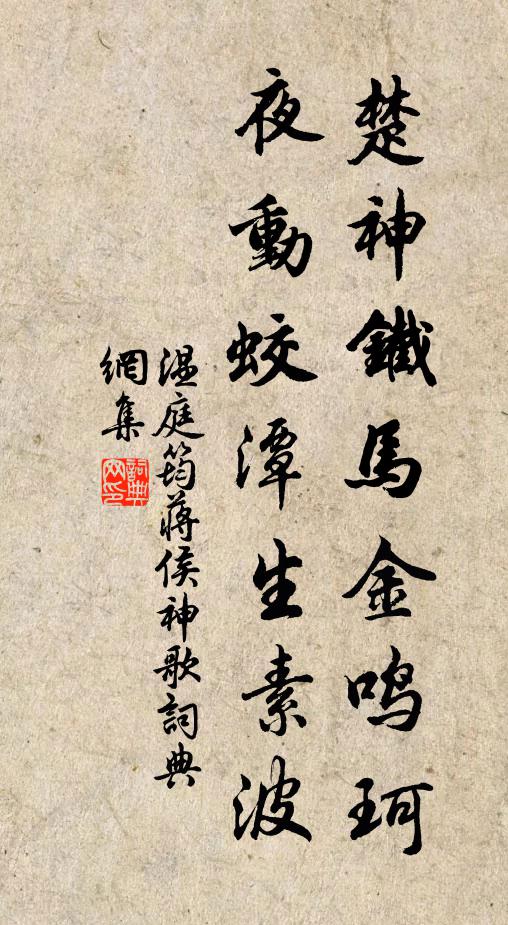 楚神鐵馬金鳴珂
夜動蛟潭生素波
溫庭筠蔣侯神歌詞典
網集
詞典網印